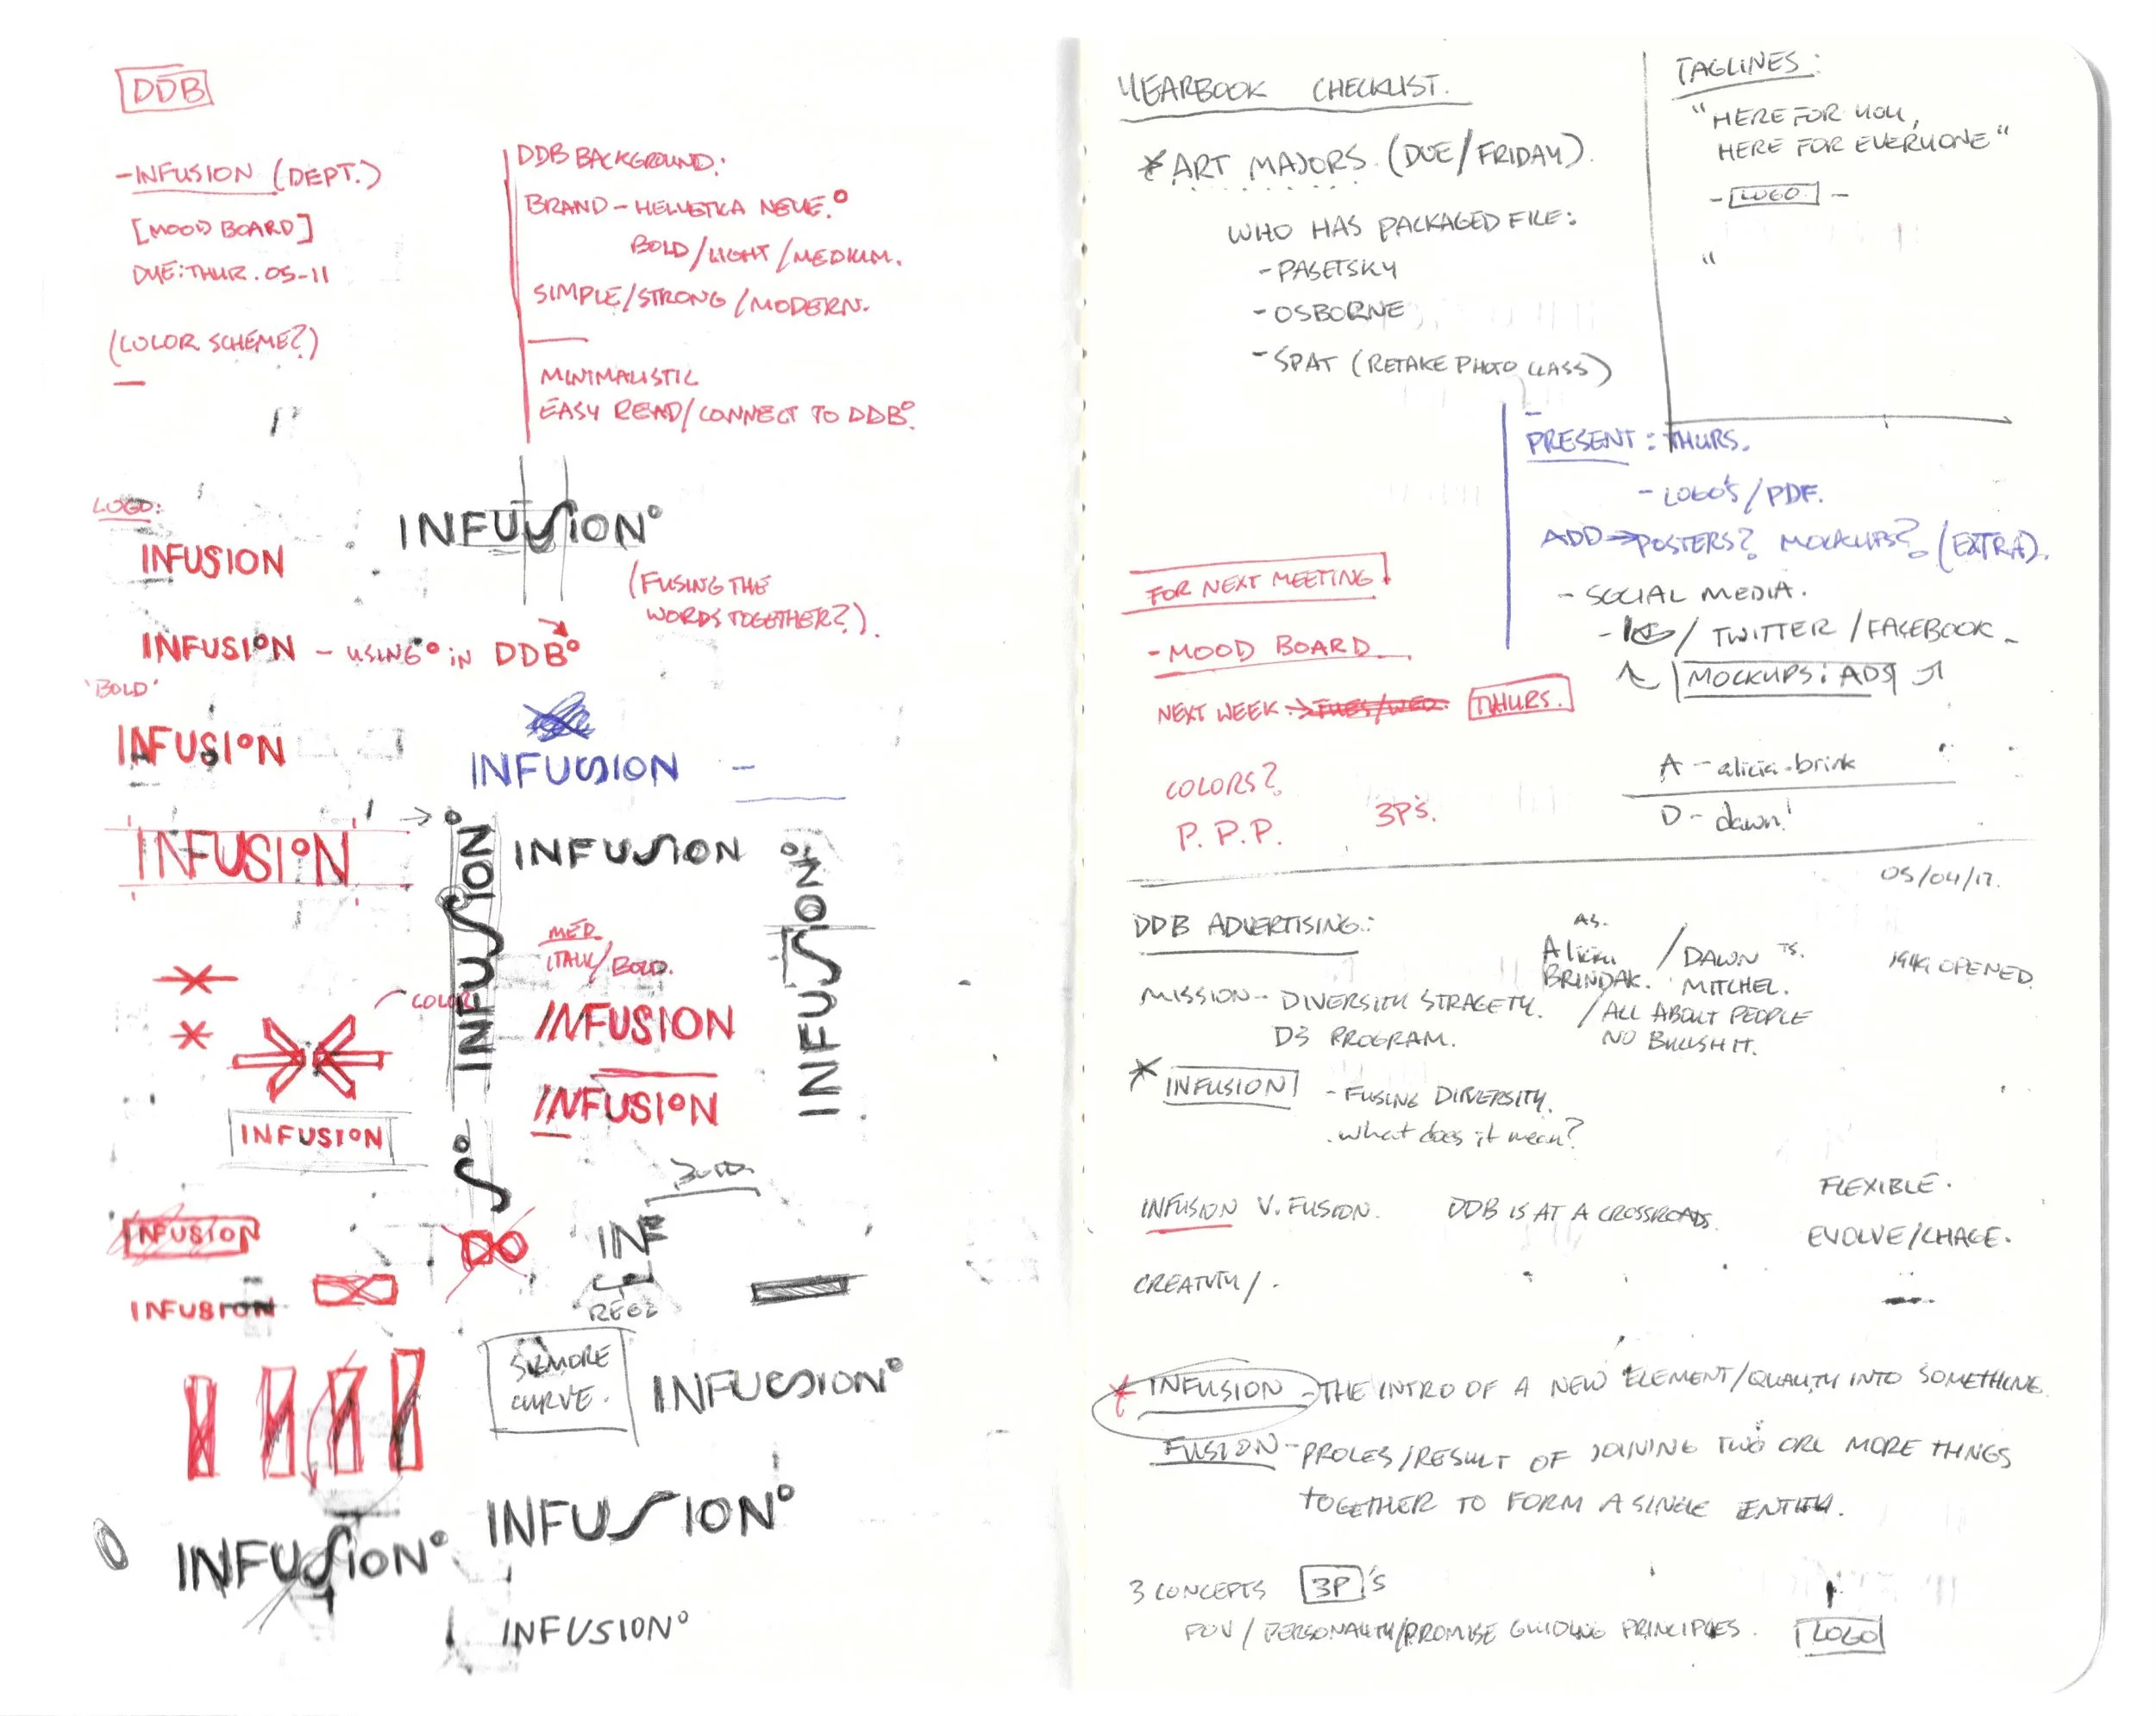 DDB
-INFUSION (DEPT.)
[MOOD BOARD]
DUE: THUR. 05-11
(COLOR SCHEME?)
DDB BACKGROUND:
BRAND - HELVETICA NEUE.°
BOLD/LIGHT/MEDIUM.
SIMPLE/STRONG/MODERN.
MINIMALISTIC
EASY READ/CONNECT TO DDB°.
LOGO:
INFUSION
INFUSION°
(FUSING THE
WORDS TOGETHER?).
INFUSION - USING ° IN DDB°
'BOLD'
INFUSION
INFUSION
INFUSION
INFUSION°
INFUSION
INFUSION°
COLOR
MED
ITALIC/BOLD.
INFUSION
INFUSION
INFUSION
S°
INFUSION
INFUSION
INF
REG
S IS MORE
CURVE.
INFUSION°
INFUSION°
INFUSION°
INFUSION°
YEARBOOK CHECKLIST.
*ART MAJORS. (DUE/FRIDAY).
WHO HAS PACKAGED FILE:
-PASETSKY
-OSBORNE
-SPAT (RETAKE PHOTO CLASS)
TAGLINES:
"HERE FOR YOU,
HERE FOR EVERYONE"
- LOGO -
"
PRESENT: THURS.
- LOGO'S/PDF.
ADD → POSTERS? MOCKUPS? (EXTRA).
- SOCIAL MEDIA.
- IG / TWITTER / FACEBOOK -
MOCKUPS: ADS
FOR NEXT MEETING
-MOOD BOARD
NEXT WEEK → TUES/WED. THURS.
COLORS?
P. P. P. 3P'S.
A - alicia.brink
D - dawn!
05/04/17.
DDB ADVERTISING:
AS.
Alicia / DAWN TS.
BRINDAK. MITCHEL.
1949 OPENED.
MISSION - DIVERSITY STRAGETY. / ALL ABOUT PEOPLE
D3 PROGRAM. NO BULLSHIT.
* INFUSION - FUSING DIVERSITY.
. what does it mean?
INFUSION V. FUSION. DDB IS AT A CROSSROADS.
FLEXIBLE.
EVOLVE/CHAGE.
CREATVITY/.
* INFUSION - THE INTRO OF A NEW ELEMENT/QUALITY INTO SOMETHING
FUSION - PROCES/RESULT OF JOINING TWO ORE MORE THINGS
TOGETHER TO FORM A SINGLE ENTITY.
3 CONCEPTS 3P'S
POV / PERSONALITY/PROMISE GUIDING PRINCIPLES. LOGO